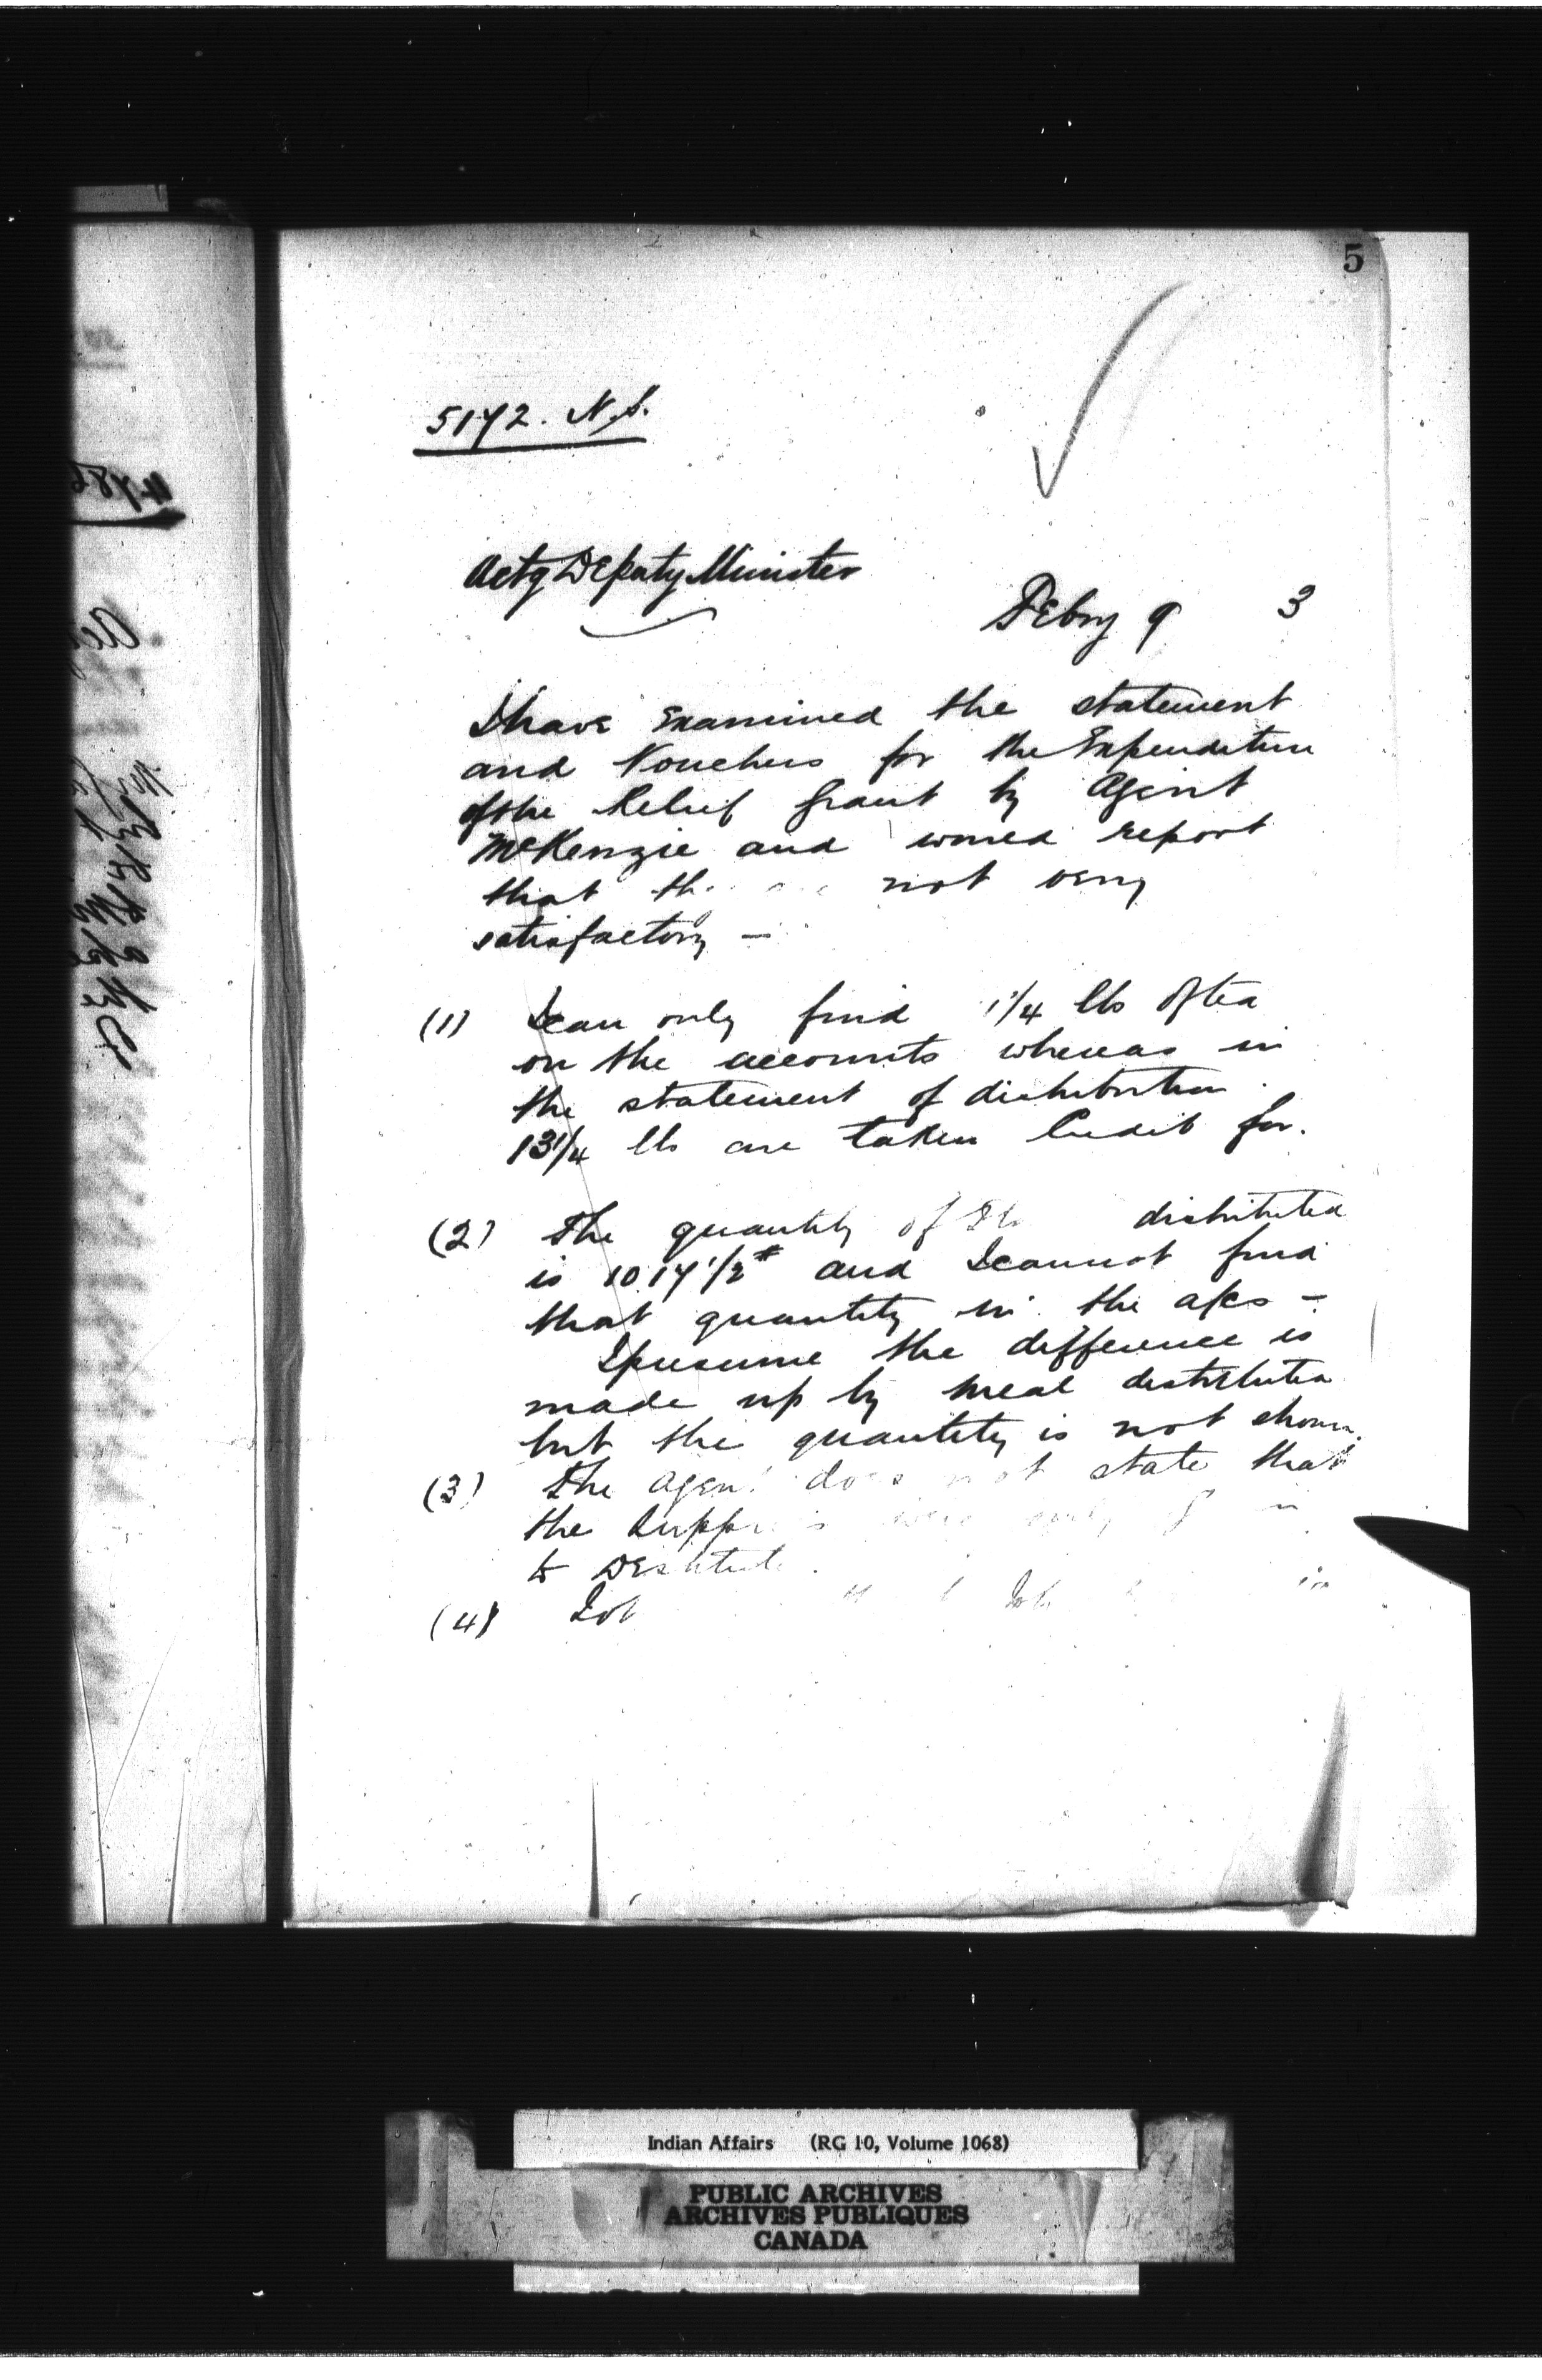 5
5172. N.S.
Actg Deputy Minister
Febry 9 3
I have examined the statement
and Vouchers for the Expenditure
of the Relief Grant by Agent
McKenzie and would report
that not very
satisfactory —
(1) I can only find 1 1/4 lbs of tea
on the accounts whereas in
the statement of distribution
13 1/4 lbs are taken Credit for.
(2) The quantity of distributed
is 1017 1/2 # and I cannot find
that quantity in the a/cs —
I presume the difference is
made up by meal distributed
but the quantity is not shown.
(3) The Agent does not state that
the Supplies were only
to Destitute
(4)
Indian Affairs (RG 10, Volume 1068)
PUBLIC ARCHIVES
ARCHIVES PUBLIQUES
CANADA